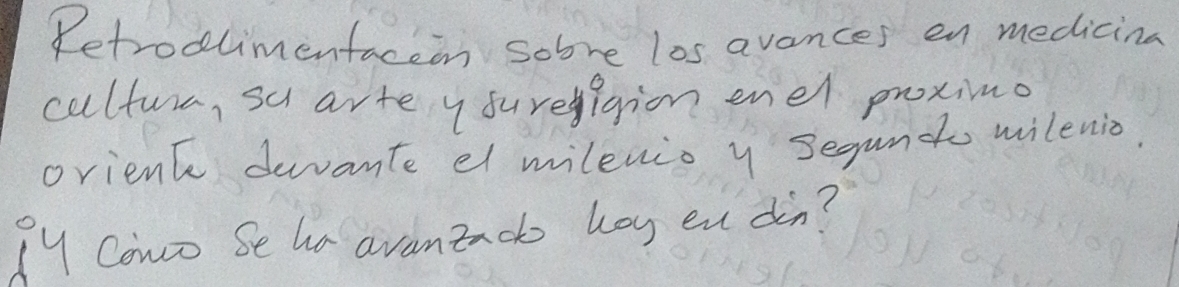 Retroalimentación sobre los avances en medicina
cultura, su arte y su religion en el proximo
oriente durante el milenio y segundo milenio.
¿Y Cómo se ha avanzado hoy en dia?